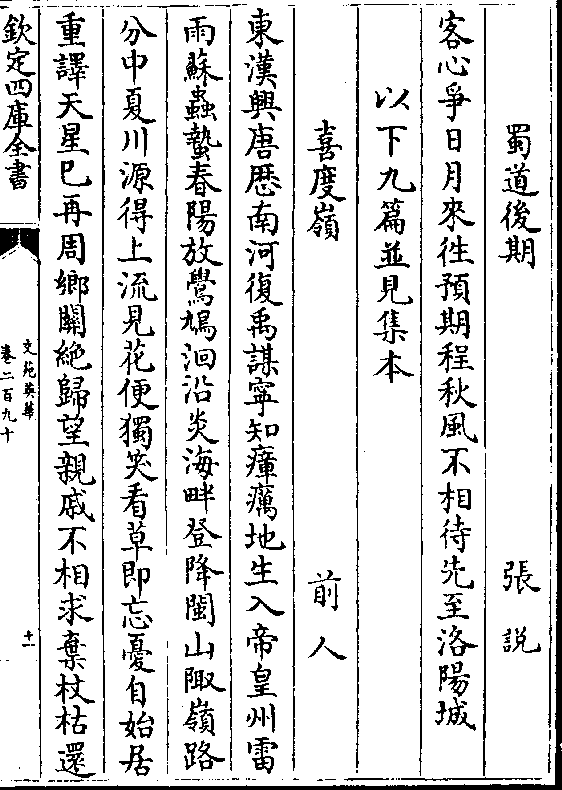 蜀道後期 張説
客心爭日月來徃預期程秋風不相待先至洛陽城
以下九篇並見集本
喜度嶺 前人
東漢興唐歴南河復禹謀寧知瘴癘地生入帝皇州雷
雨蘇蟲蟄春陽放鷽鳩洄沿炎海畔登降閩山陬嶺路
分中夏川源得上流見花便獨笑看草即忘憂自始居
重譯天星已再周鄉關絶歸望親戚不相求棄杖枯還
欽定四庫全書
文苑英華
卷二百九十
十一